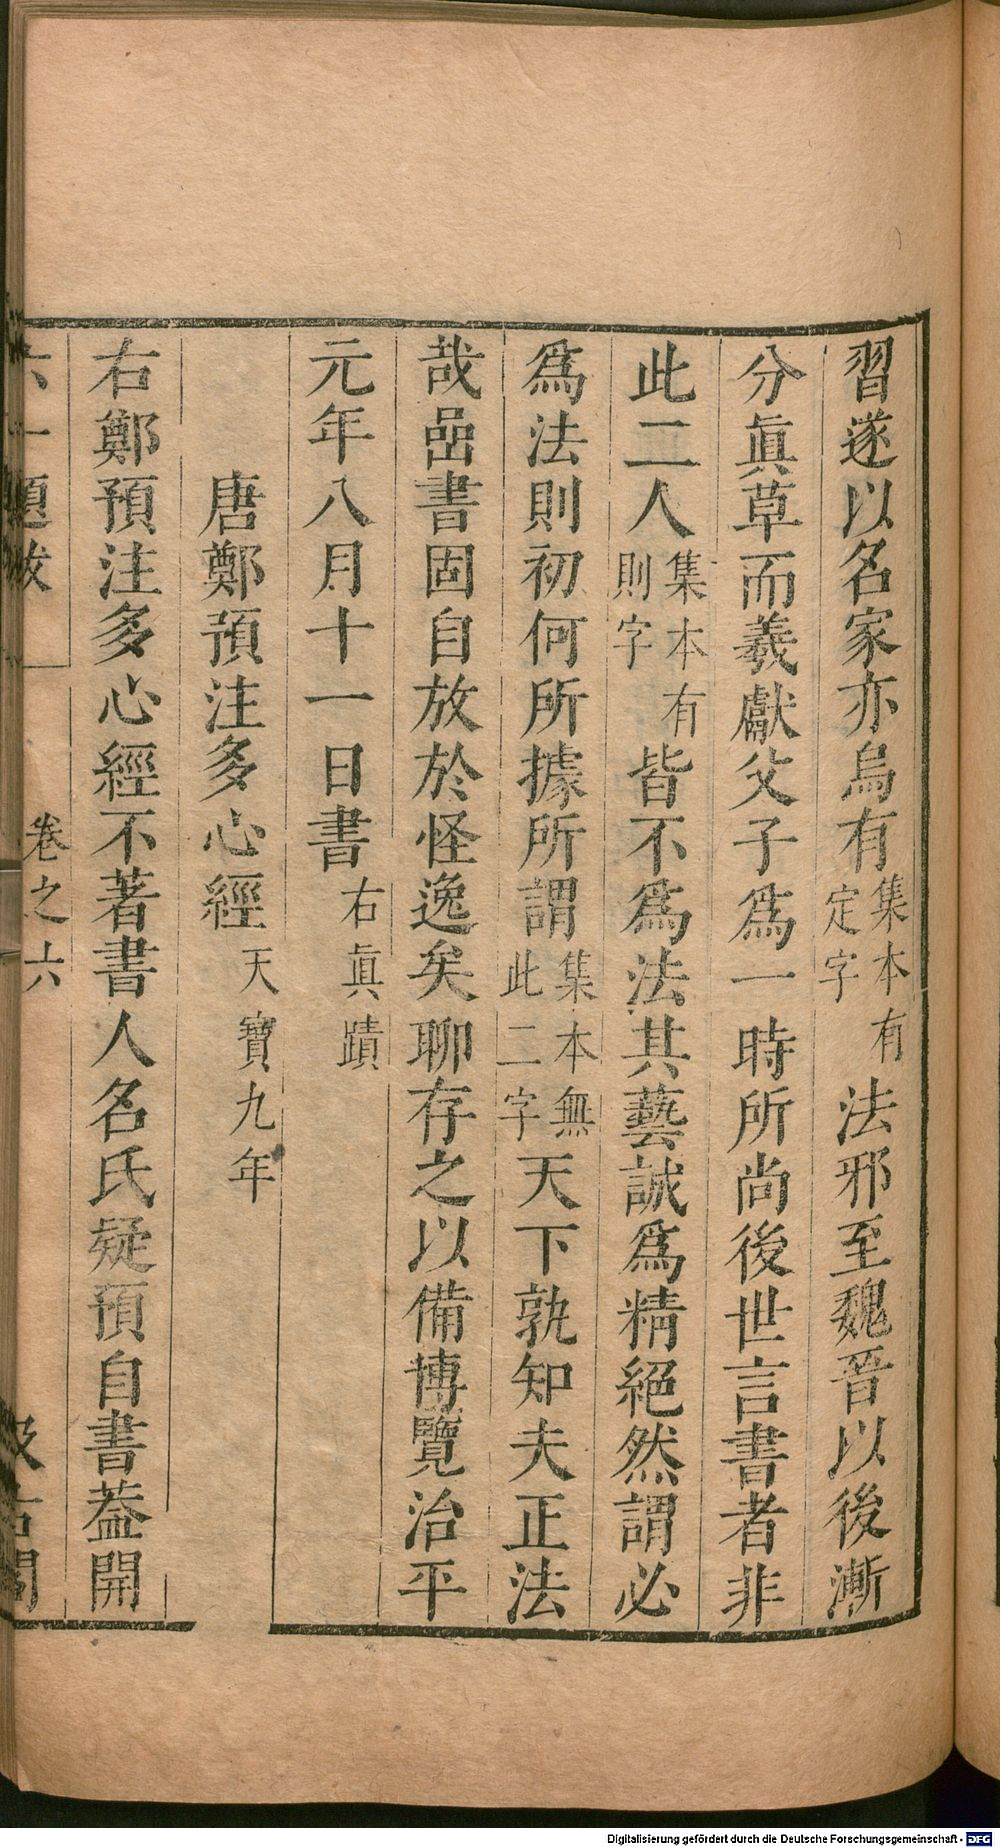 習遂以名家亦烏有集本有定字法邪至魏晋以後漸
分眞草而羲獻父子爲一時所尚後世言書者非
此二人集本有則字皆不爲法其藝誠爲精絕然謂必
爲法則初何所據所謂集本無此二字天下孰知夫正法
哉嵒書固自放於怪逸矣聊存之以備博覽治平
元年八月十一日書右眞蹟
唐鄭預注多心經天寶九年
右鄭預注多心經不著書人名氏疑預自書葢開
六一題跋 卷之六 汲古閣
Digitalisierung gefördert durch die Deutsche Forschungsgemeinschaft - DFG